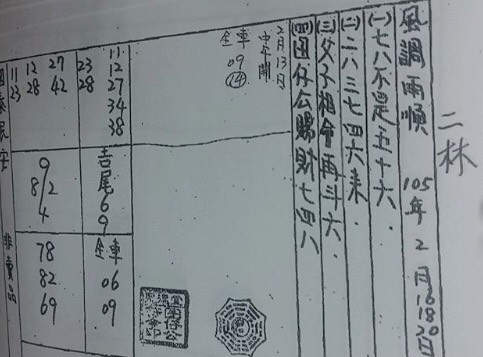 二林
風調雨順 105年2月16 18 20日
(一)七八不是五十六
(二)二八三七四六来
(三)父子相會再斗六
(四)囝仔公賜財七四八
2月13日
中午開
全車
09
14
11
12
27
34
38
23
28
27
42
12
28
11
23
吉尾69
全車
06
09
9
8/2
4
78
82
69
國泰民安
非賣品